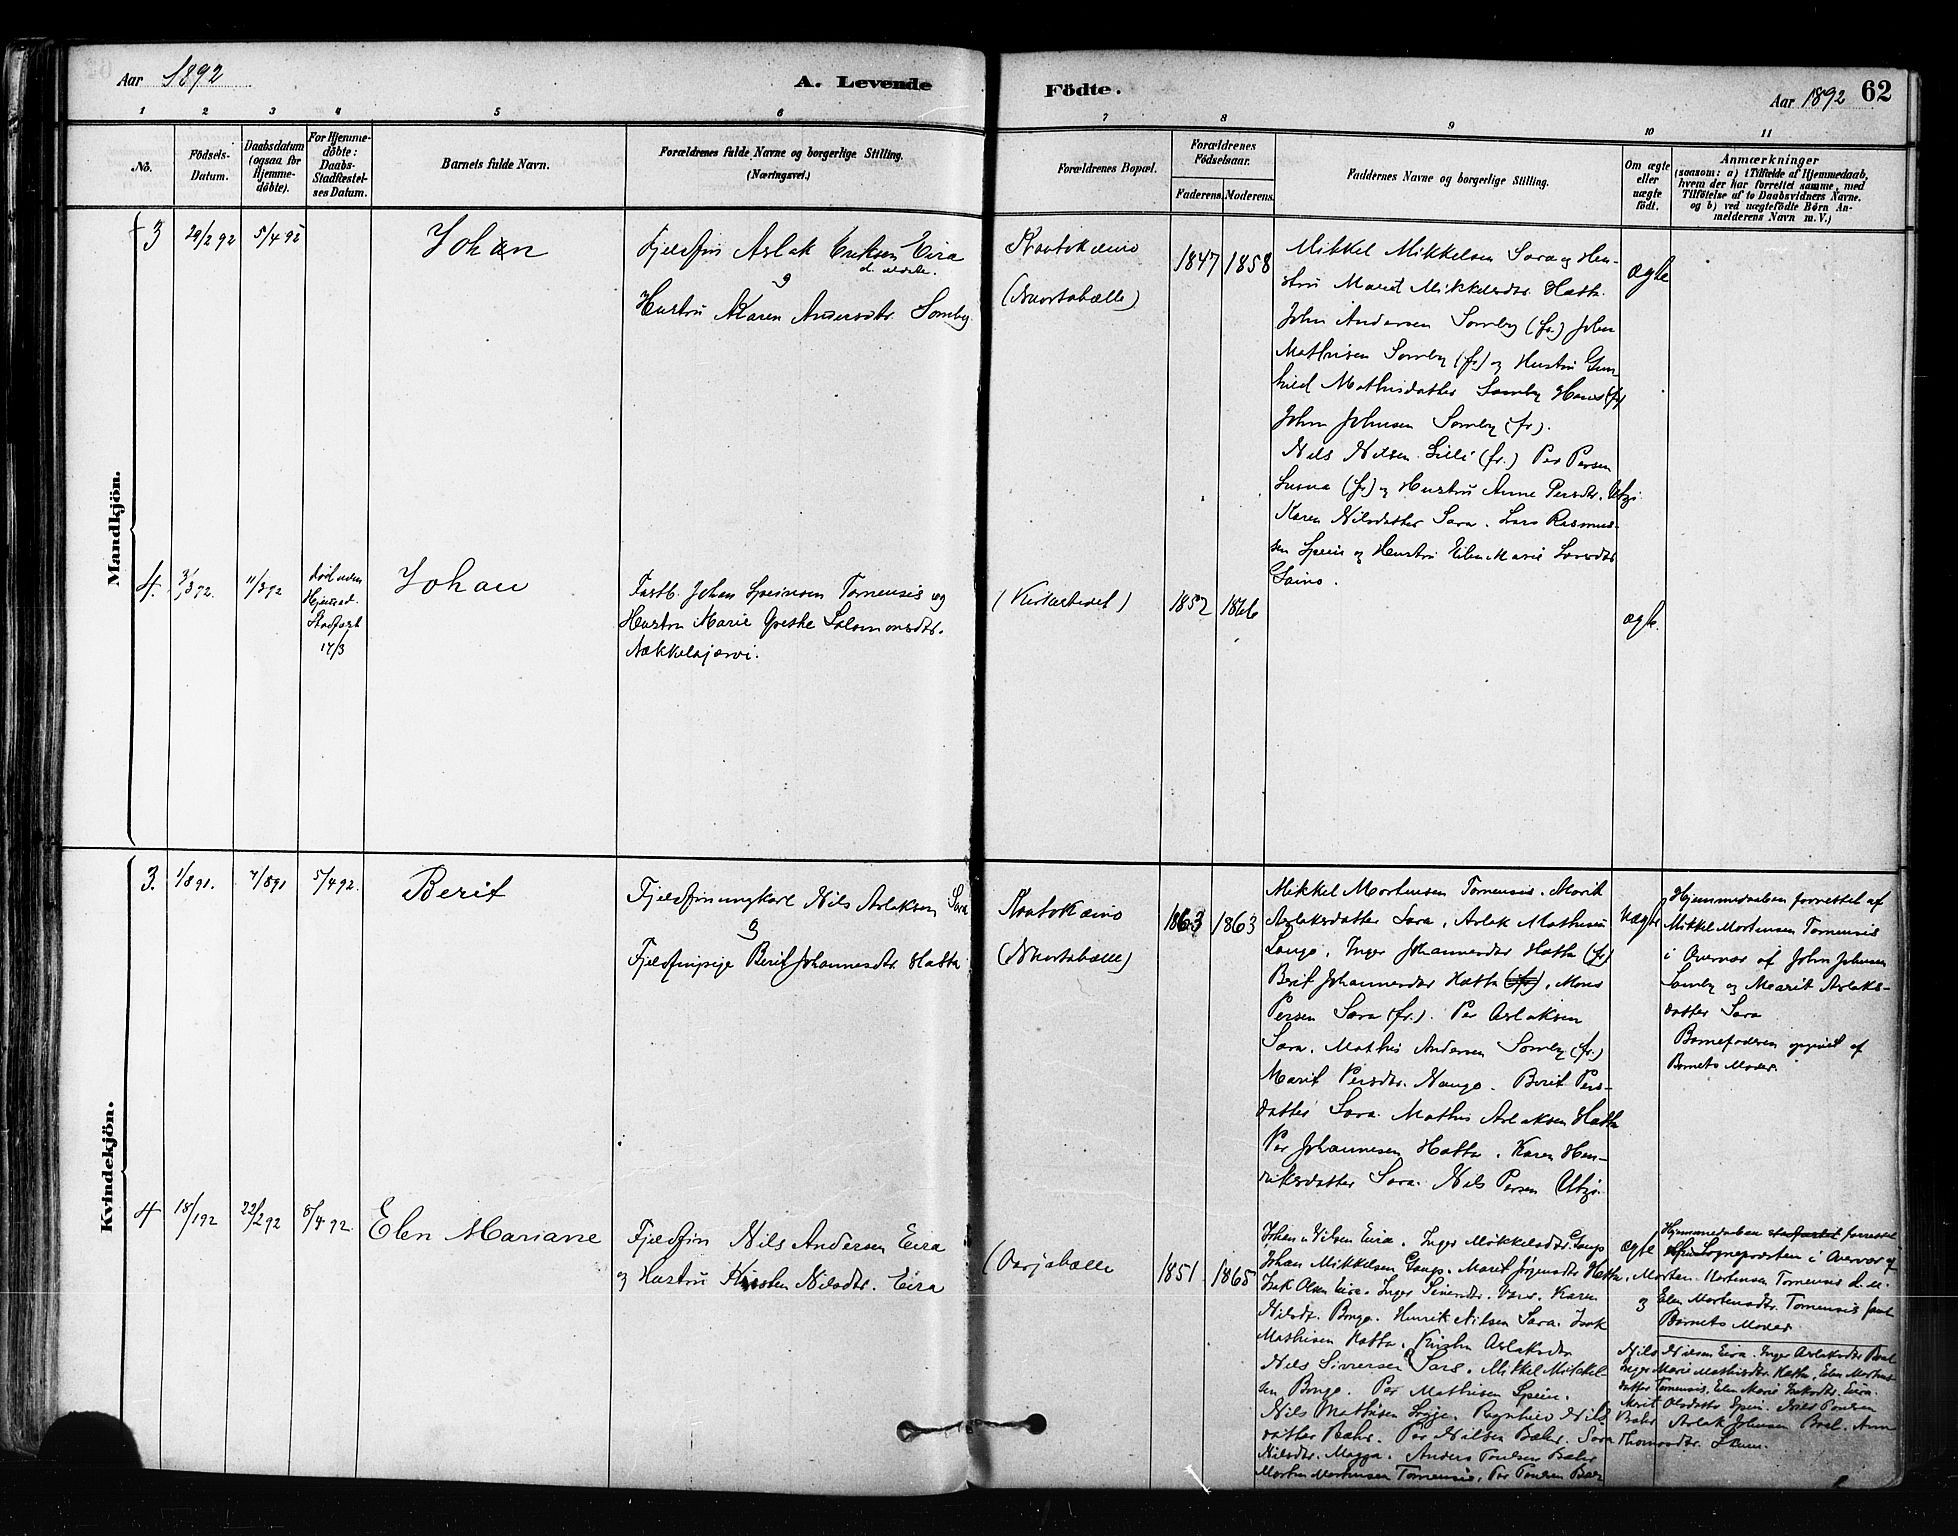 Aar 1892
A. Levende
Födte.
Aar 1892 62
1 2 3 4 5 6 7 8 9 10 11
No.
Födsels-
Datum.
Daabsdatum
(ogsaa for
Hjemme-
döbte).
For Hjemme-
döbte:
Daabs-
Stadfæstel-
ses Datum.
Barnets fulde Navn.
Forældrenes fulde Navne og borgerlige Stilling.
(Næringsvei.)
Forældrenes Bopæl.
Forældrenes
Födselsaar.
Faderens. Moderens.
Faddernes Navne og borgerlige Stilling.
Om ægte
eller
uægte
födt.
Anmærkninger
(saasom: a) i Tilfælde af Hjemmedaab,
hvem der har forrettet samme, med
Tilföielse af to Daabsvidners Navne,
og b) ved uægtefödte Börn An-
melderens Navn m. V.)
Mandkjön.
3
29/2 92
5/4 92
Johan
Fjeldfin Aslak Eriksen Eira
d. ældre.
og
Hustru Karen Andersdtr. Somby
Koutokæino
(Nuortabælle)
1847 1858
Mikkel Mikkelsen Sara og Hu-
stru Marit Mikkelsdtr. Hætta.
John Andersen Somby (fr.) John
Mathisen Somby (fr.) og Hustru Gun-
hild Mathisdatter Somby Hans (fr.)
John Johnsen Somby (fr.).
Nils Nilsen Sille (fr.) Per Persen
(fr.) og Hustru Anne Persdtr. Utzi
Karen Nilsdatter Sara. Lars Rasmus-
sen Spein og Hustru Elen Marie Larsdtr
Gaino.
ægte
4.
3/3 92.
11/3 92
død uden
Stadfæst
17/3
Johan
Fastb. Johan Speinsen Tornensis og
Hustru Marie Grethe Salomonsdtr.
Nækkelæjærvi.
(Kirkestedet)
1852 1866
ægte.
Kvindekjön.
3.
1/8 91.
7/8 91
5/4 92.
Berit
Fjeldfinungkarl Nils Aslaksen Sara
og
Fjeldfinpige Berit Johannesdtr. Hætta
Koutokæino
(Nuortabælle)
1863 1863
Mikkel Mortensen Tornensis. Marit
Aslaksdatter Sara, Aslak Mathisen
Gaup, Inger Johannesdtr Hætta (fr)
Berit Johannesdtr Hætta (fr), Mons
Persen Sara (fr.). Per Aslaksen
Sara. Mathis Andersen Somby (fr.)
Marit Persdtr. Nango. Berit Pers-
datter Sara. Mathis Aslaksen Hætta
Per Johannesen Hætta. Karen Hen-
riksdatter Sara. Nils Persen Utzi.
Uægte
Hjemmedaaben forrettet af
Mikkel Mortensen Tornensis
i Overvær af John Johnsen
Somby og Marit Aslaks-
datter Sara
Barnefaderen opgivet af
Barnets Moder.
4
18/1 92
22/2 92
8/4 92.
Elen Mariane
Fjeldfin Nils Andersen Eira
og Hustru Kirsten Nilsdtr. Eira
(Oarjabælle
1851 1865
Johan Nilsen Eira. Inger Mikkelsdtr. Gaup
Johan Mikkelsen Gaup. Marit Jörgensdtr Hætta.
Isak Olsen Eira. Inger Karen
Nilsdtr. Bongo. Henrik Nilsen Sara. Isak
Mathisen Hætta. Kirsten Aslaksdtr
Nils Siversen Sara. Mikkel Mikkel-
sen Bongo. Per Mathisen Spein.
Nils Mathisen Ragnhild Nils-
datter Bæhr. Per Nilsen Bæhr. Sara Thomasdtr.
Nilsdtr. Magga. Anders Poulsen Bæhr
Morten Mortensen Tornensis, Per Poulsen Bæhr
ægte
Hjemmedaaben stadfæstet forrettet
af Sognepræsten i Overvær af
Morten Mortensen Tornensis d. æ.
og Elen Mortensdtr. Tornensis samt
Barnets Moder.
Nils Nilsen Eira. Inger Aslaksdtr Bæl
Inger Marie Mathisdtr. Hætta, Elen Mortens-
datter Tornensis, Elen Marie Isaksdtr. Eira.
Marit Olsdatter Spein. Nils Poulsen
Bæhr Aslak Johnsen Bæl. Anne